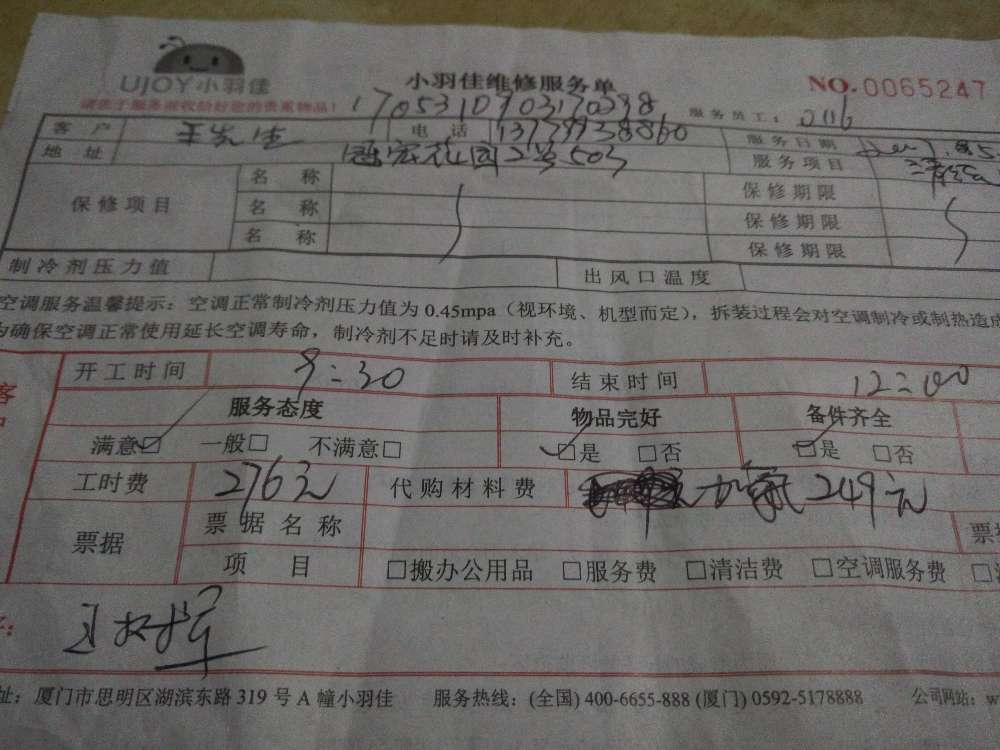 UJOY小羽佳
小羽佳维修服务单
NO.0065247
请您于服务前收拾好您的贵重物品!
服务员工: 2116
客 户 王先生 电 话 服务日期
地 址 花园2号503 服务项目
保修项目 名 称 保修期限
名 称 保修期限
名 称 保修期限
制冷剂压力值 出风口温度
空调服务温馨提示: 空调正常制冷剂压力值为 0.45mpa(视环境、机型而定), 拆装过程会对空调制冷或制热造成
为确保空调正常使用延长空调寿命, 制冷剂不足时请及时补充。
开工时间 9:30 结束时间 12:00
服务态度 物品完好 备件齐全
满意☑ 一般□ 不满意□ ☑是 □否 ☑是 □否
工时费 276元 代购材料费 249元
票据 票据名称
项 目 □搬办公用品 □服务费 □清洁费 □空调服务费
址: 厦门市思明区湖滨东路 319 号 A 幢小羽佳 服务热线: (全国) 400-6655-888 (厦门) 0592-5178888 公司网站: w